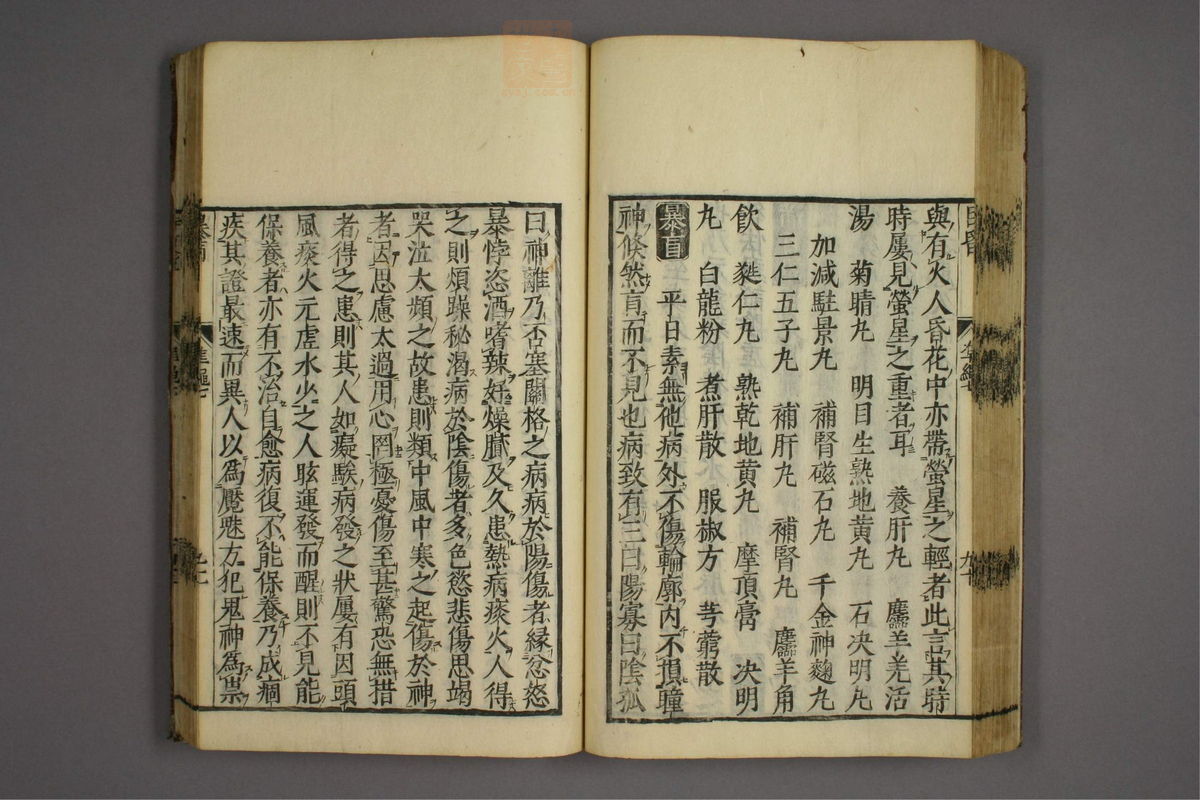 與有火人昏花中亦帶螢星之輕者此言其時
時屢見螢星之重者耳　養肝丸　麢羊羌活
湯　菊睛丸　明目生熟地黃丸　石决明丸
加減駐景丸　補腎磁石丸　千金神麴丸
三仁五子丸　補肝丸　補腎丸　麢羊角
飲　蕤仁丸　熟乾地黃丸　摩頂膏　决明
丸　白龍粉　煮肝散　服椒方　芎藭散
暴盲　平日素無他病外不傷輪廓内不損瞳
神倐然盲而不見也病致有三曰陽寡曰陰孤
曰神離乃否塞關格之病病於陽傷者縁忿怒
暴悖恣酒嗜辣好燥膩及久患熱病痰火人得
之則煩躁秘渴病於陰傷者多色慾悲傷思竭
哭泣太頻之故患則類中風中寒之起傷於神
者因思慮太過用心罔極憂傷至甚驚恐無措
者得之患則其人如癡騃病發之狀屢有因頭
風痰火元虛水少之人眩運發而醒則不見能
保養者亦有不治自愈病復不能保養乃成痼
疾其證最速而異人以爲魘魅方犯鬼神爲祟